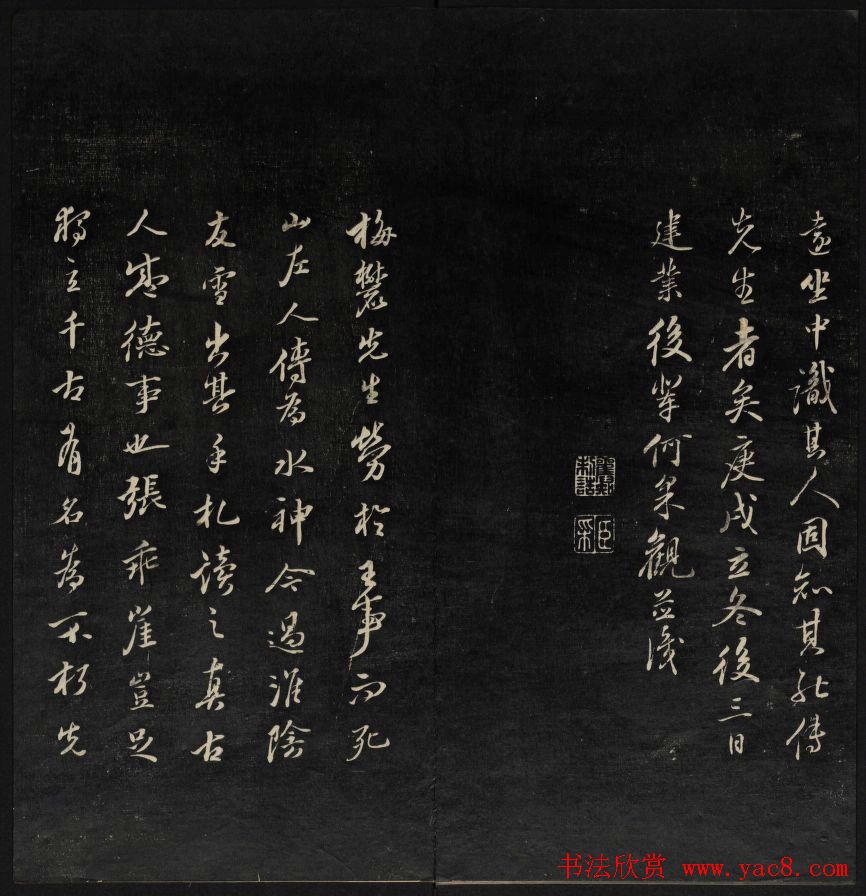 意坐中識其人固知其能傳
先生者矣庚戌立冬後三日
建業後學何采觀并識
臣采
梅麓先生勞於王事而死
山左人傳為水神今過淮陰
友雪出其手札讀之真古
人盛德事也張乖崖豈足
獨立千古有名為不朽先
书法欣赏 www.yac8.com